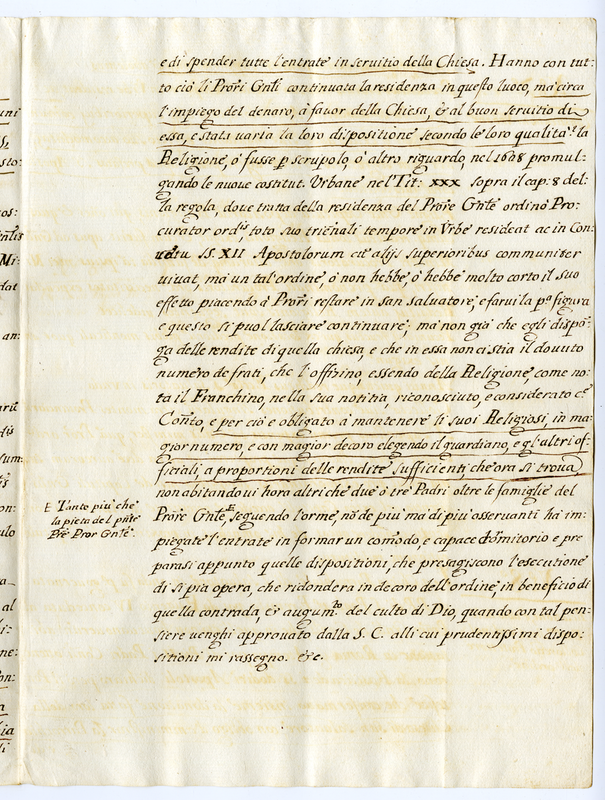 e di spender tutte l'entrate in seruitio della Chiesa. Hanno con tut-
to ciò li Pror̃i Gñli continuata la residenza in questo luoco, ma circa
l'impiego del denaro, à fauor della Chiesa, & al buon seruitio di
essa, e stata uaria la loro dispositione secondo le loro qualità. la
Religione, ò fusse p scrupolo, ò altro riguardo, nel 1628 promul-
gando le nuoue costitut. Urbane nel Tit: XXX sopra il cap: 8 del-
la regola, doue tratta della residenza del Prore Gñle ordinò Pro-
curator ordis toto suo triẽnali tempore in Vrbe resideat ac in Con
uẽtu SS. XII Apostolorum cũ alijs superioribus communiter
uiuat, mà un tal'ordine, ò non hebbe, ò hebbe molto corto il suo
effetto piacendo à Pror̃i restare in san saluatore, e farui la pa figura
e questo si puol lasciare continuare; mà non già che egli dispon-
ga delle rendite di quella chiesa, e che in essa non ci stia il douuto
numero de frati, che l'offitino, essendo della Religione, come no-
ta il Franchino, nella sua notitia, riconosciuto, e considerato
Conto, e per ciò e obligato à mantenere li suoi Religiosi, in ma-
gior numero, e con magior decoro elegendo il guardiano, e gl'altri of-
ficiali, a proportioni delle rendite sufficienti che ora si troua
non abitandoui hora altri che due ò tre Padri oltre le famiglie del
Prore Gñle E seguendo l'orme, nõ de piu mà di piu osseruanti hà im-
piegate l'entrate in formar un comodo, e capace dormitorio e pre
parasi appunto quelle dispositioni, che presagiscono l'esecutione
di si pia opera, che ridonderà in decoro dell'ordine, in beneficio di
quella contrada, & augumto del culto di Dio, quando con tal pen-
siere uenghi approuato dalla S. C. alli cui prudentissimi dispo-
sitioni mi rassegno. &c.
E Tanto più che
la pietà del pñte
Pre Pror Gñle.